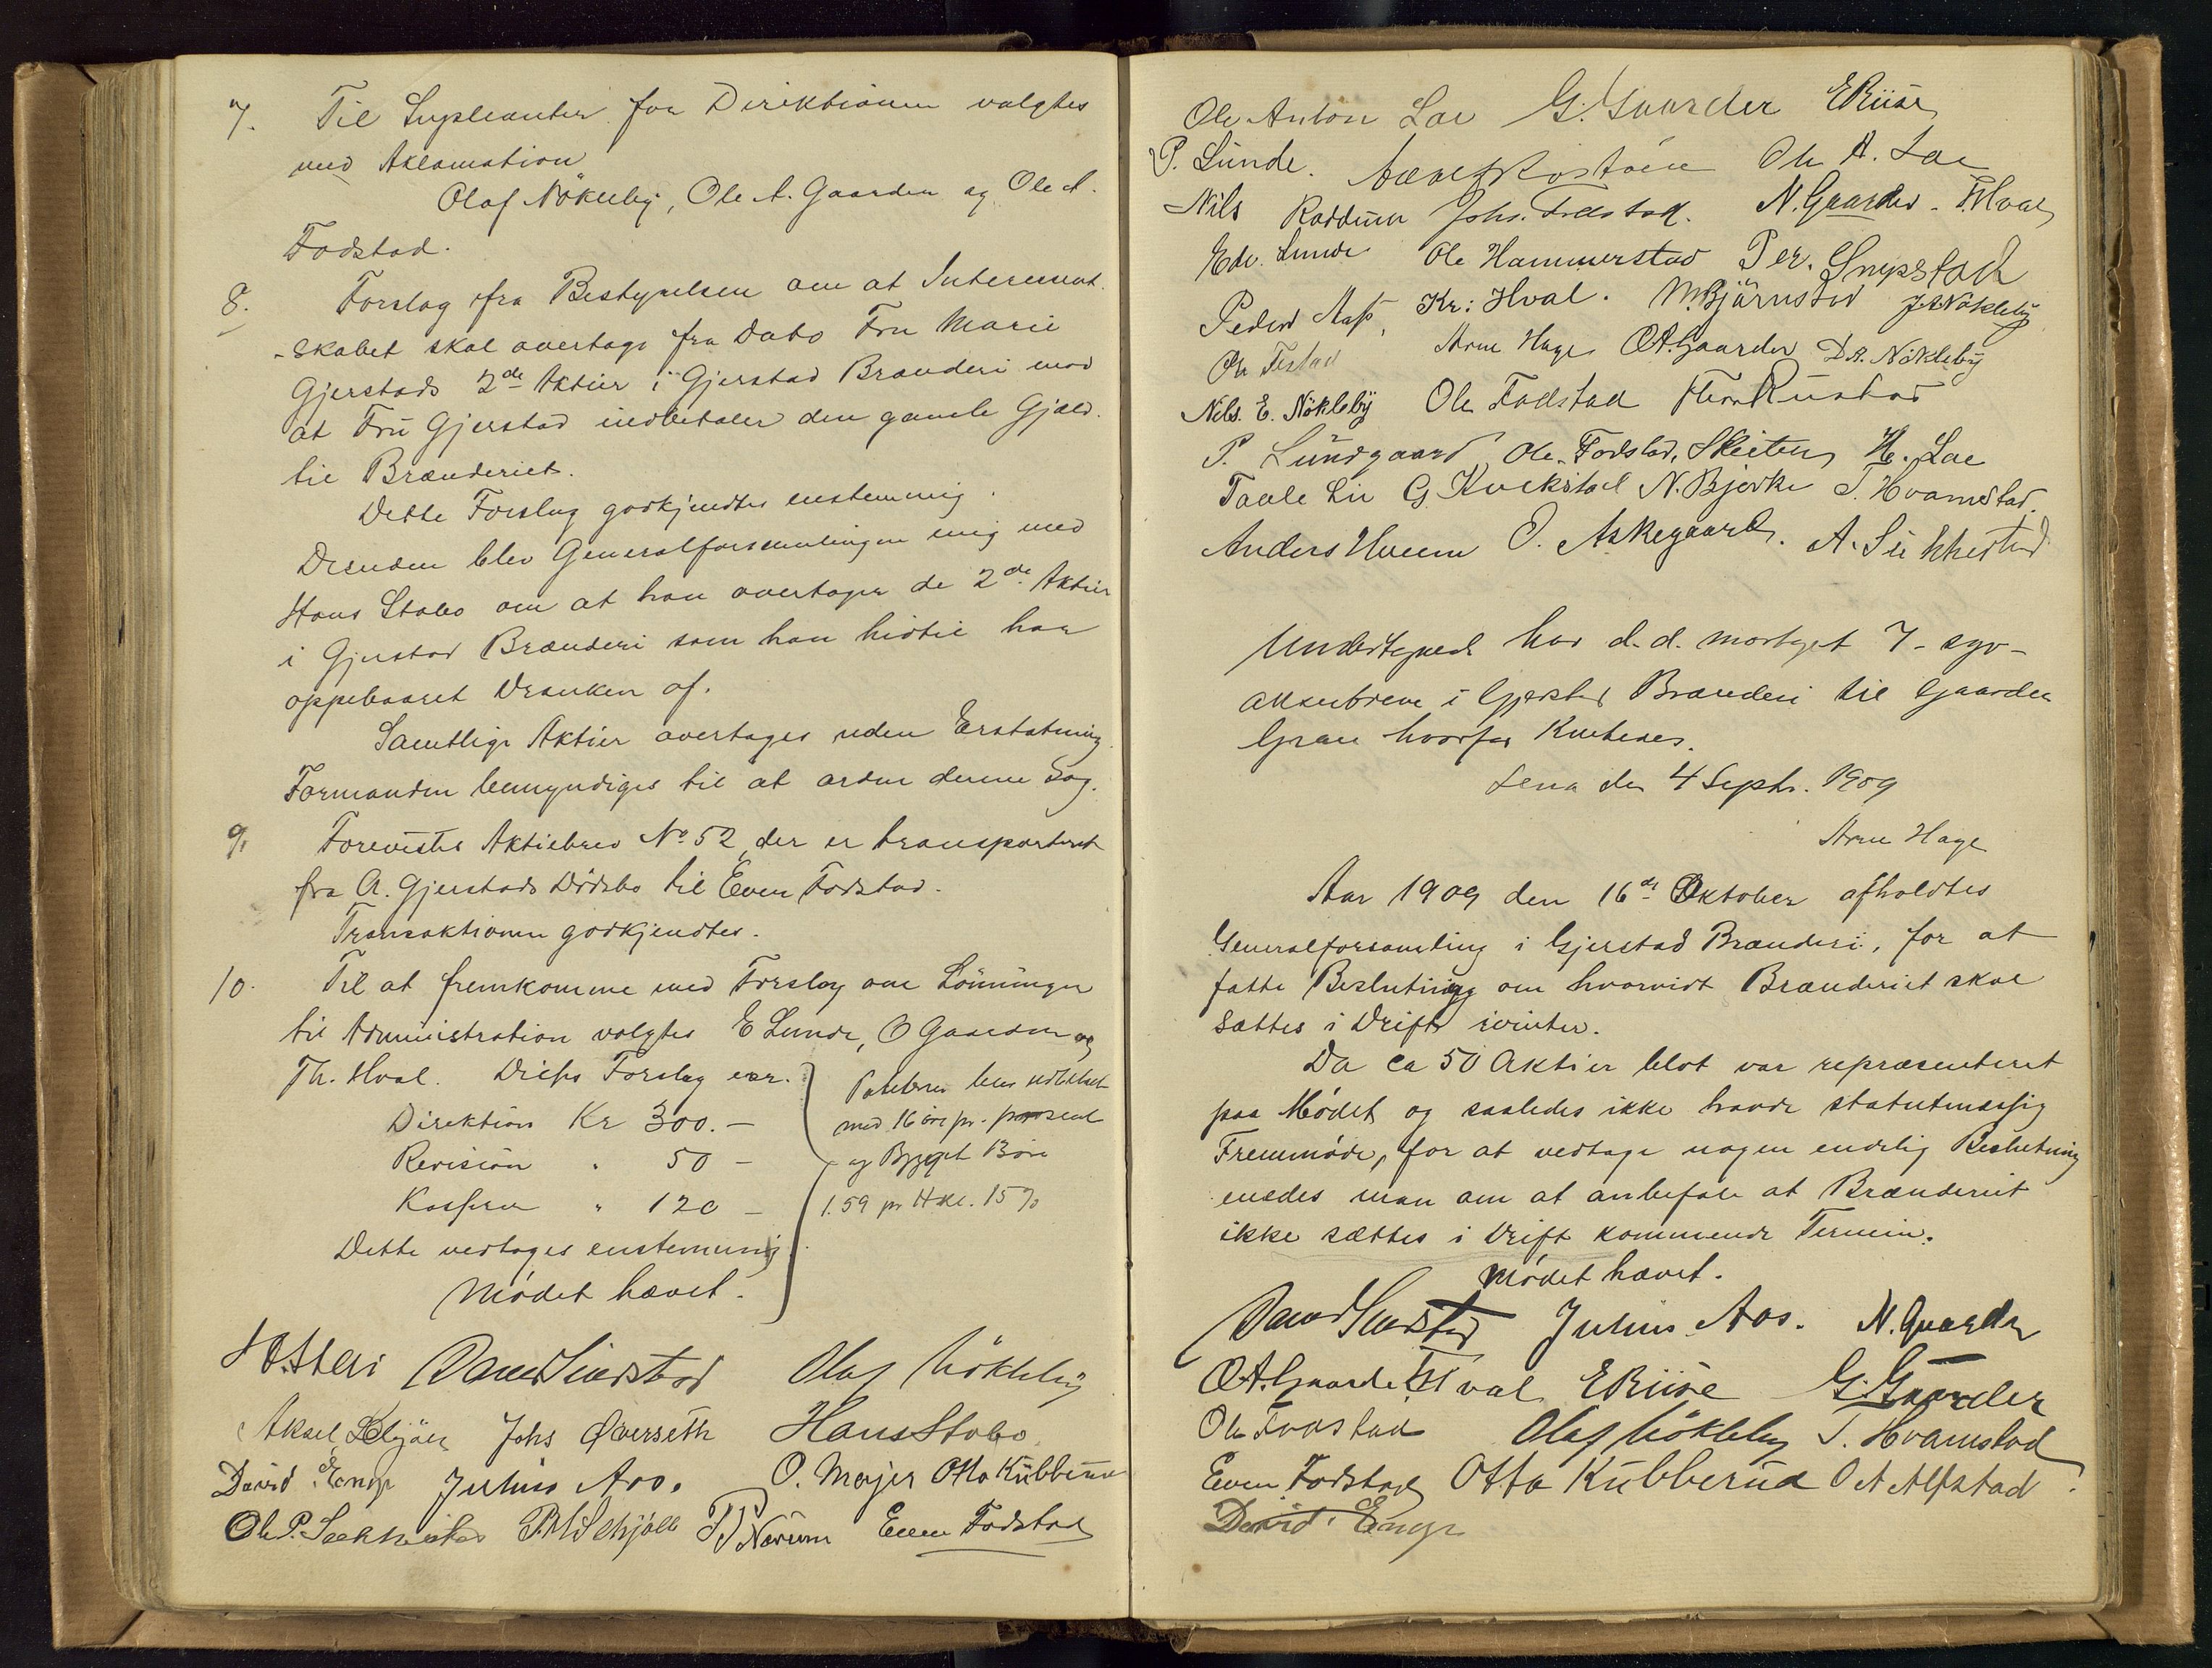 7. Til Supleanter for Direktionen valgtes
ved Aklamation
Olaf Nökleby, Ole A. Gaarder og Ole A.
Fodstad.
8. Forslag fra Bestyrelsen om at Interessent-
-skabet skal overtage fra Dato Fru Marie
Gjerstads 2de Aktier i Gjerstad Brænderi mod
at Fru Gjerstad indbetaler den gamle Gjæld
til Brænderiet.
Dette Forslag godkjendtes enstemmig.
Desuden blev Generalforsamlingen enig med
Hans Stabo om at han overtager de 2de Aktier
i Gjerstad Brænderi som han hidtil har
oppebaaret Dranken af.
Samtlige Aktier overtages uden Erstatning
Formanden bemyndiges til at ordne denne Sag.
9. Forevistes Aktiebrev No 52 der er transporteret
fra A. Gjerstads Dödsbo til Even Fodstad.
Transaktionen godkjendtes.
10. Til at fremkomme med Forslag om Lönninger
til Administration valgtes E Lunde, O Gaarder og
Th. Hval. Disses Forslag var.
Direktion Kr 300.-
Revision " 50 -
Kasserer " 120 -
Dette vedtages enstemmig.
Mödet hævet.
Poteterne blev udbetalt
med 16 öre pr. prosent
og Bygget Börs
1.59 pr Hkl. 15 %
David Sivestad Olaf Nökleby
Aksel Johs Øverseth Hans Stabo
David Enge Julius Aas. O. Meyer Otto Kubberud
Ole P. P Narum Even Fodstad
Ole Anton Lae G. Gaarder E Riise
P. Lunde. Ole A. Lae
Nils Johs. Fodstad. N. Gaarder. T Hval
Edv. Lunde Ole Hammerstad Per.
Peder Aass, Kr: Hval. M Bjørnstad J. A. Nökleby
Ole Arne Hage O A. Gaarder D. A. Nökleby
Nils. E. Nökleby Ole Fodstad Rustad
P. Lundgaard Ole Fodstad, H. Lae
Paule Lie G. N. Bjerke T. Hvamstad.
Anders Hveem O. Askegaard. A. Sukkestad
Undertegnede har d.d. modtaget 7 - syv -
aktiebreve i Gjerstad Brænderi til Gaarden
Gran hvorfor Kviteres.
Lena den 4 Septr. 1909
Arne Hage
Aar 1909 den 16de Oktober afholdtes
Generalforsamling i Gjerstad Brænderi, for at
fatte Beslutning om hvorvidt Brænderiet skal
sættes i Drift ivinter.
Da ca 50 Aktier blot var repræsenteret
paa Mödet og saaledes ikke havde statutmæssig
Fremmöde, for at vedtage nogen endelig Beslutning
enedes man om at anbefale at Brænderiet
ikke sættes i Drift kommende Termin.
Mödet hævet.
David Sivestad Julius Aas. N. Gaarder
O A. Gaarder T Hval E Riise G. Gaarder
Ole Fodstad Olaf Nökleby T. Hvamstad
Even Fodstad Otto Kubberud O A Alfstad
David Enge